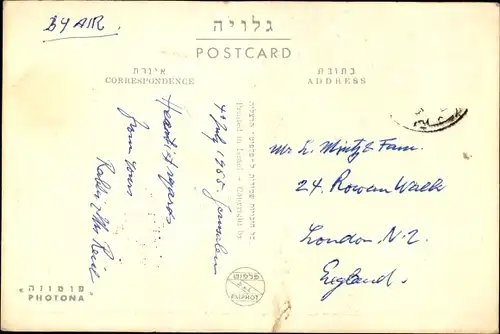 BY AIR.
גלויה
POSTCARD
אינרת
CORRESPONDENCE
כתובת
ADDRESS
4 July, 1955. Jerusalem
Heartiest regards
from yours
Rabbi & Mrs
Mr L. Mintz & Fam.
24. Rowan Walk
London N.2.
England.
Printed in Israel - Copyright by
פלפוט
PALPHOT
"פוטונה"
PHOTONA